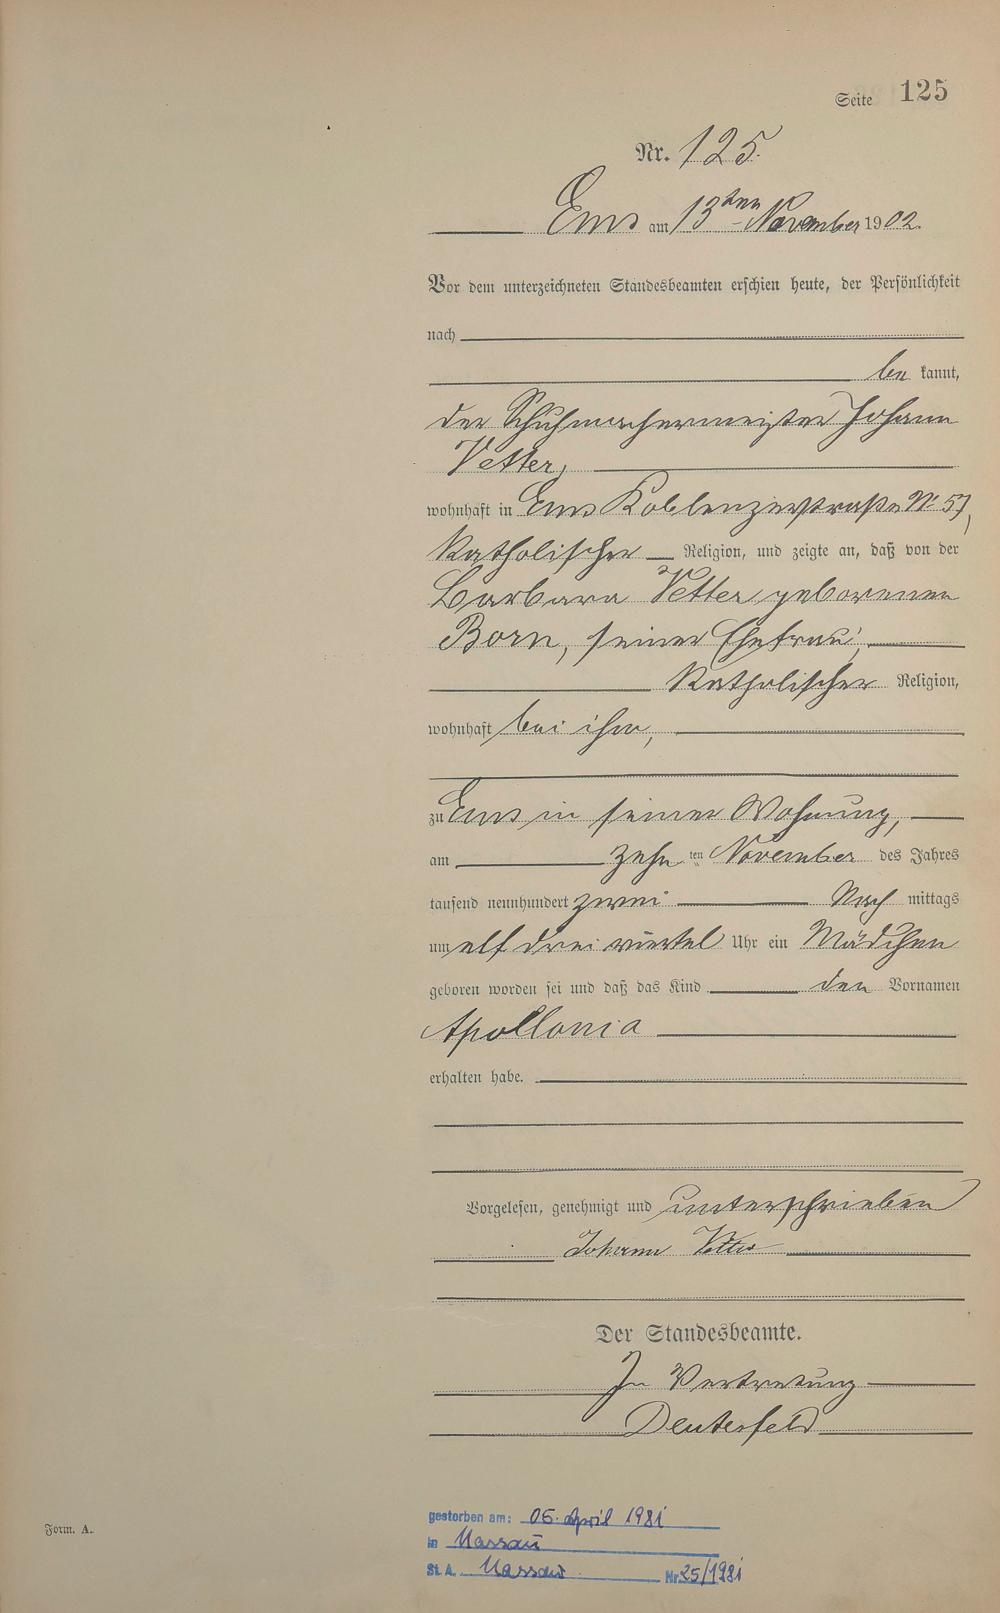 Seite 125
Nr. 125.
Ems am 13ten November 1902.
Vor dem unterzeichneten Standesbeamten erschien heute, der Persönlichkeit
nach
be kannt,
der Schuhmachermeister Johann
Vetter,
wohnhaft in Ems Koblenzerstraße No 57,
katholischer Religion, und zeigte an, daß von der
Barbara Vetter geborenen
Born, seiner Ehefrau,
katholischer Religion,
wohnhaft bei ihm,
zu Ems in seiner Wohnung,
am zehn ten November des Jahres
tausend neunhundert zwei Nach mittags
um elf drei viertel Uhr ein Mädchen
geboren worden sei und daß das Kind den Vornamen
Apollonia
erhalten habe.
Vorgelesen, genehmigt und unterschrieben
Johann Vetter
Der Standesbeamte.
In Vertretung
Deuterfeld
Form. A.
gestorben am: 05. April 1981
in Nassau
St. A. Nassau Nr. 25/1981